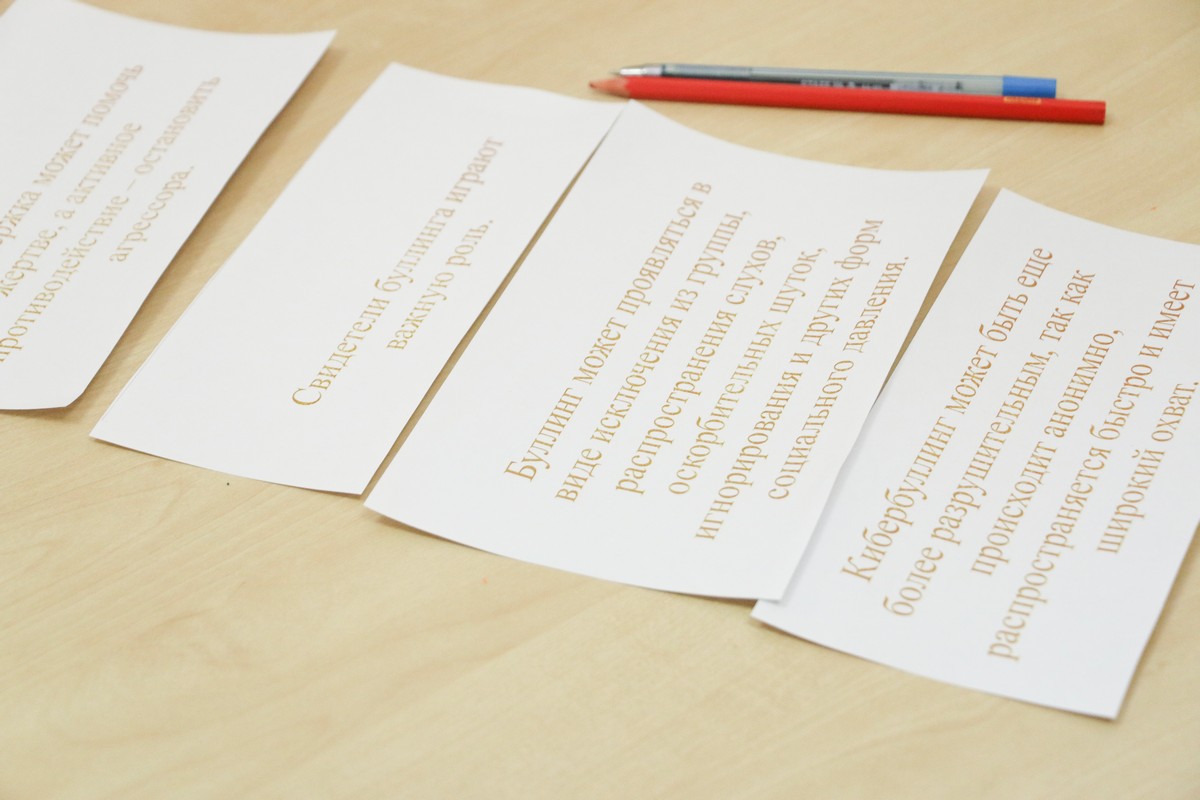 может помочь
жертве, а активное
противодействие – остановить
агрессора.
Свидетели буллинга играют
важную роль.
Буллинг может проявляться в
виде исключения из группы,
распространения слухов,
оскорбительных шуток,
игнорирования и других форм
социального давления.
Кибербуллинг может быть еще
более разрушительным, так как
происходит анонимно,
распространяется быстро и имеет
широкий охват.